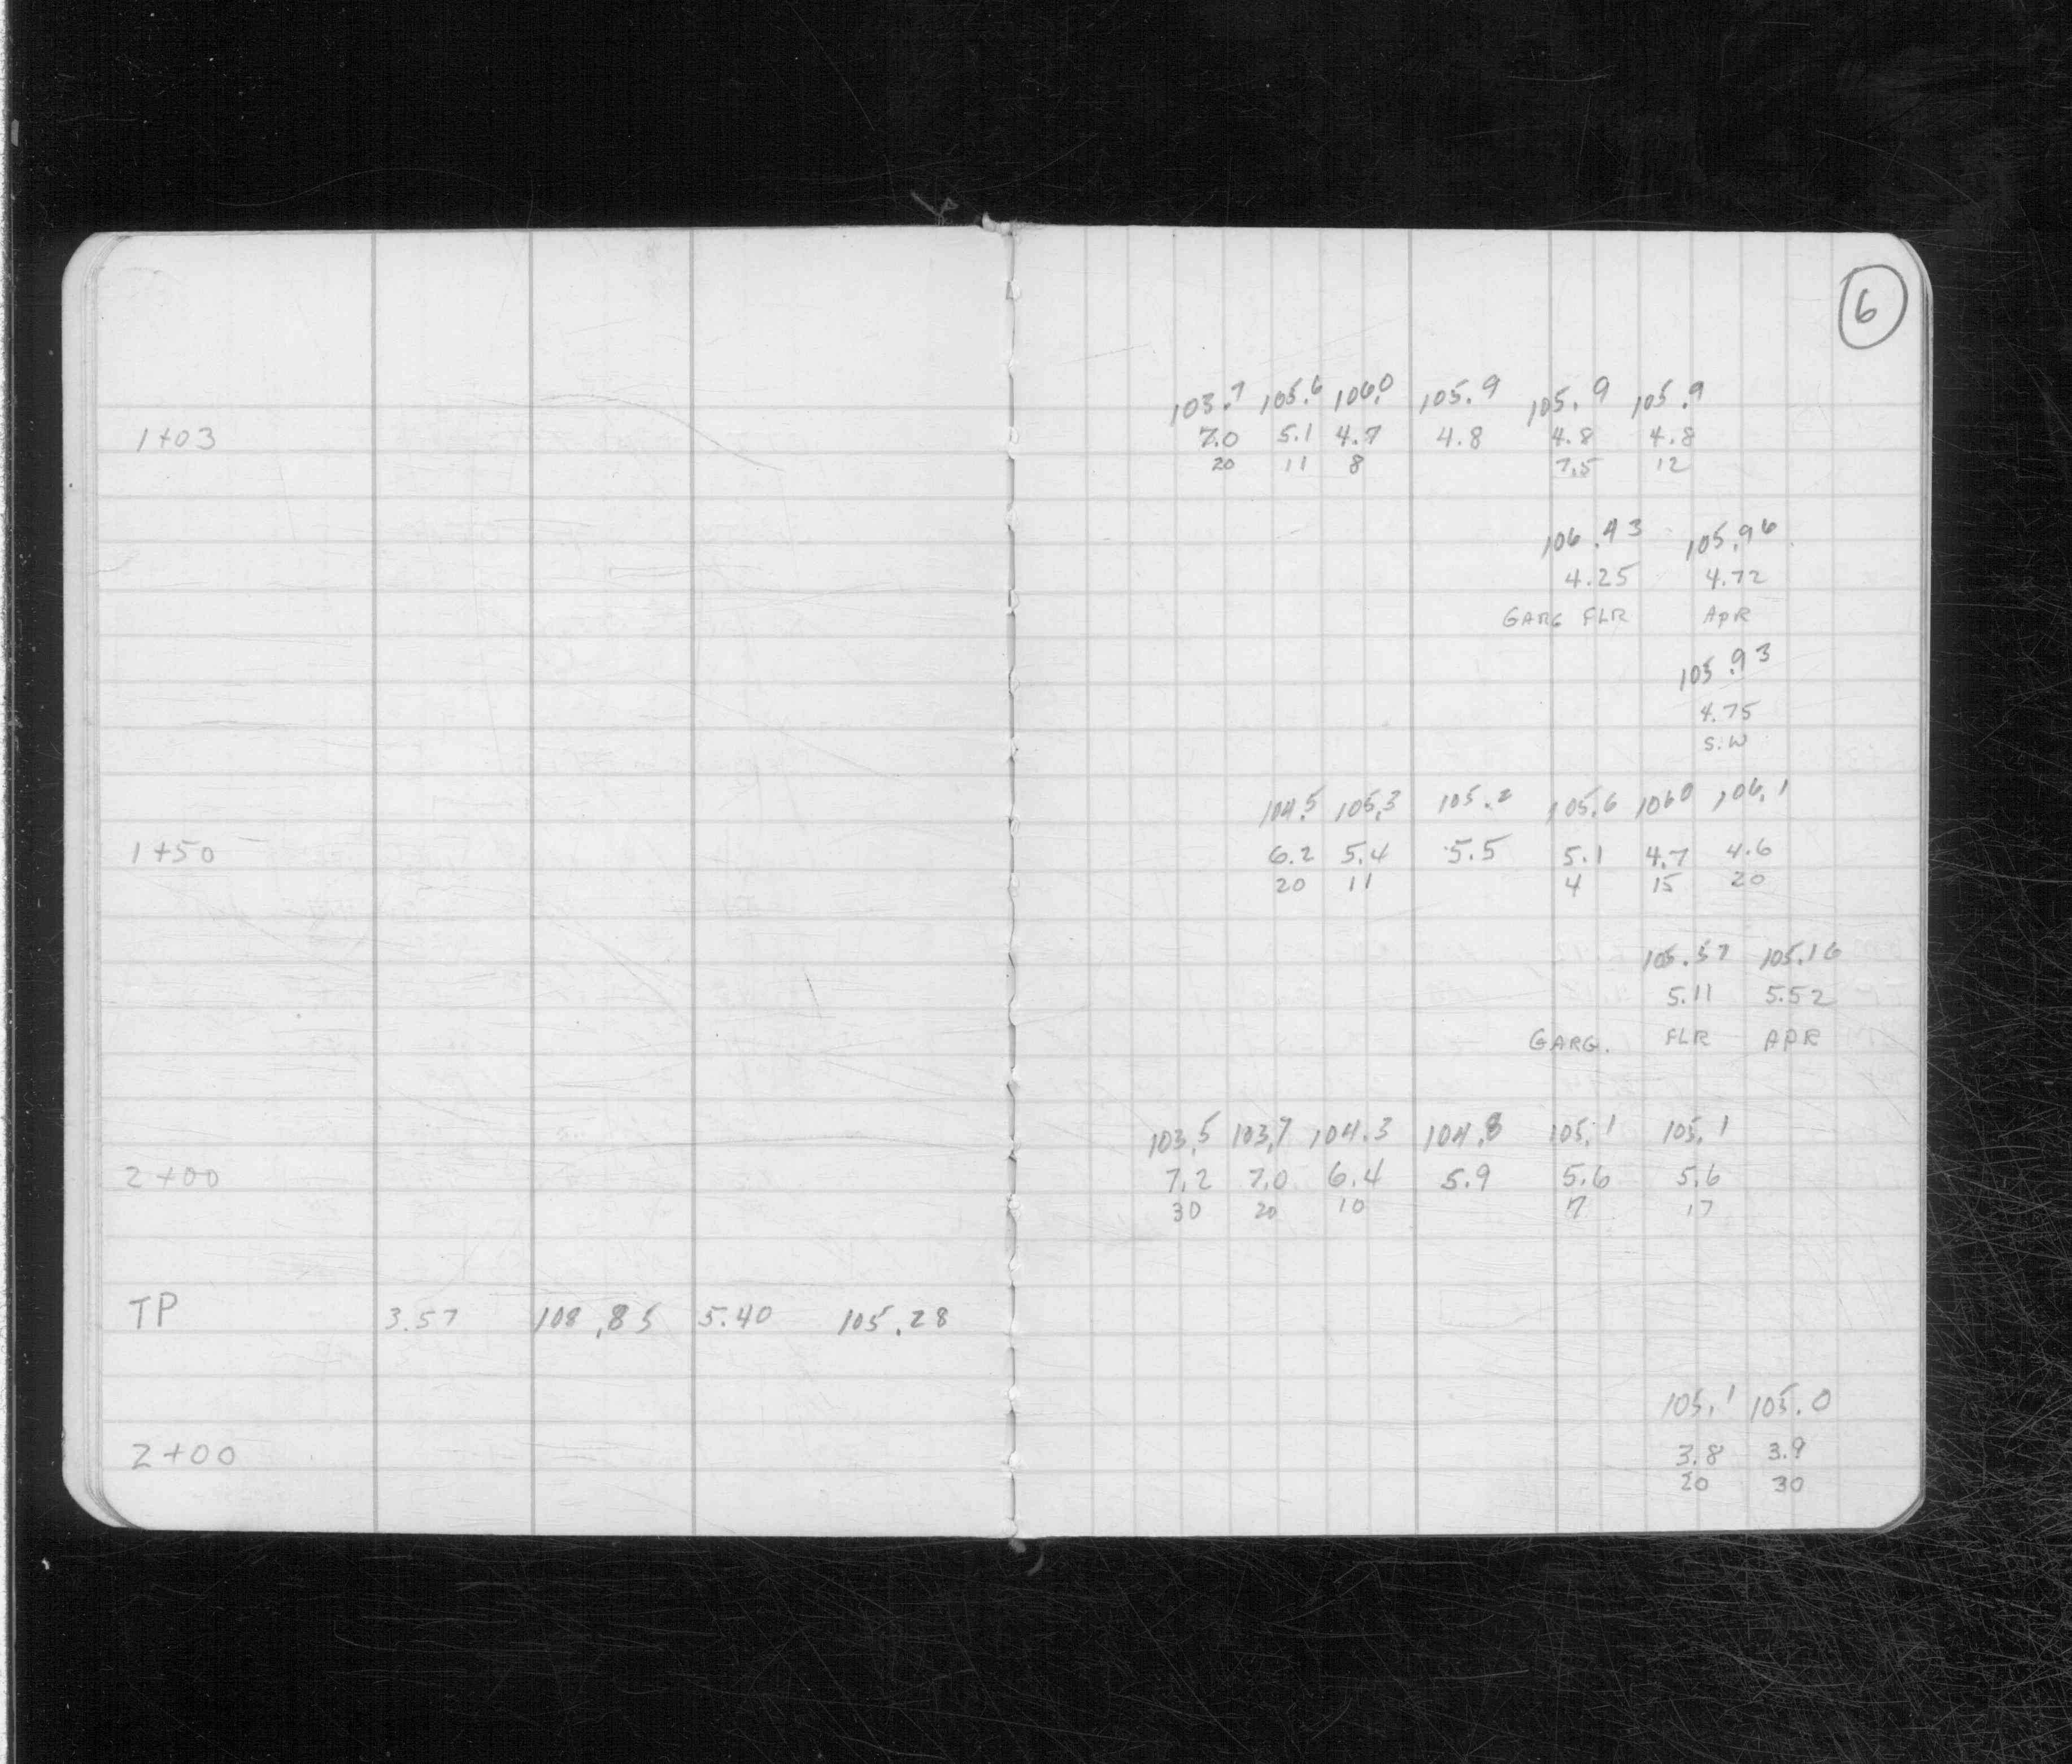 6
103.7 105.6 106.0 105.9 105.9 105.9
1+03 7.0 5.1 4.7 4.8 4.8 4.8
20 11 8 7.5 12
106.43 105.96
4.25 4.72
GARG FLR APR
105.93
4.75
S.W
104.5 105.3 105.2 105.6 106.0 106.1
1+50 6.2 5.4 5.5 5.1 4.7 4.6
20 11 4 15 20
105.57 105.16
5.11 5.52
GARG. FLR APR
103.5 103.7 104.3 104.8 105.1 105.1
2+00 7.2 7.0 6.4 5.9 5.6 5.6
30 20 10 7 17
TP 3.57 108.85 5.40 105.28
105.1 105.0
2+00 3.8 3.9
20 30